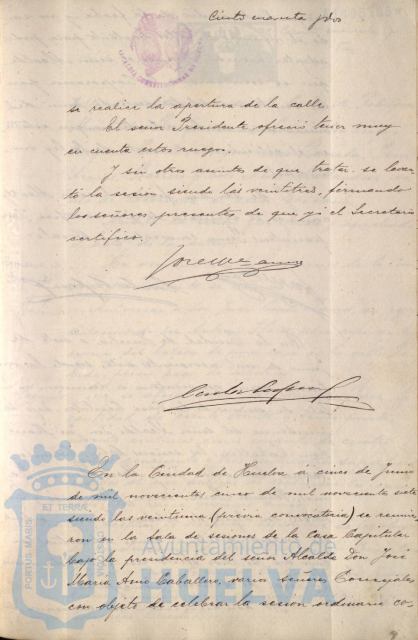 Ciento cuarenta y dos
ALCALDIA CONSTITUCIONAL DE HUELVA
se realice la apertura de la calle.
El señor Presidente ofreció tener muy
en cuenta estos ruegos.
Y sin otros asuntos de que tratar se levan
tó la sesion siendo las veintitres, firmando
los señores presentes de que yó el Secretario
certifico.
En la Ciudad de Huelva á cinco de Junio
de mil novecientos cinco de mil novecientos siete
siendo las veintiuna (previa convocatoria) se reunie
ron en la Sala de sesiones de la Casa Capitular
bajo la presidencia del señor Alcalde Don José
Maria Amo Caballero, varios señores Concejales
con objeto de celebrar la sesion ordinaria co
PORTUS MARIS
ET TERRÆ
Ayuntamiento de
HUELVA